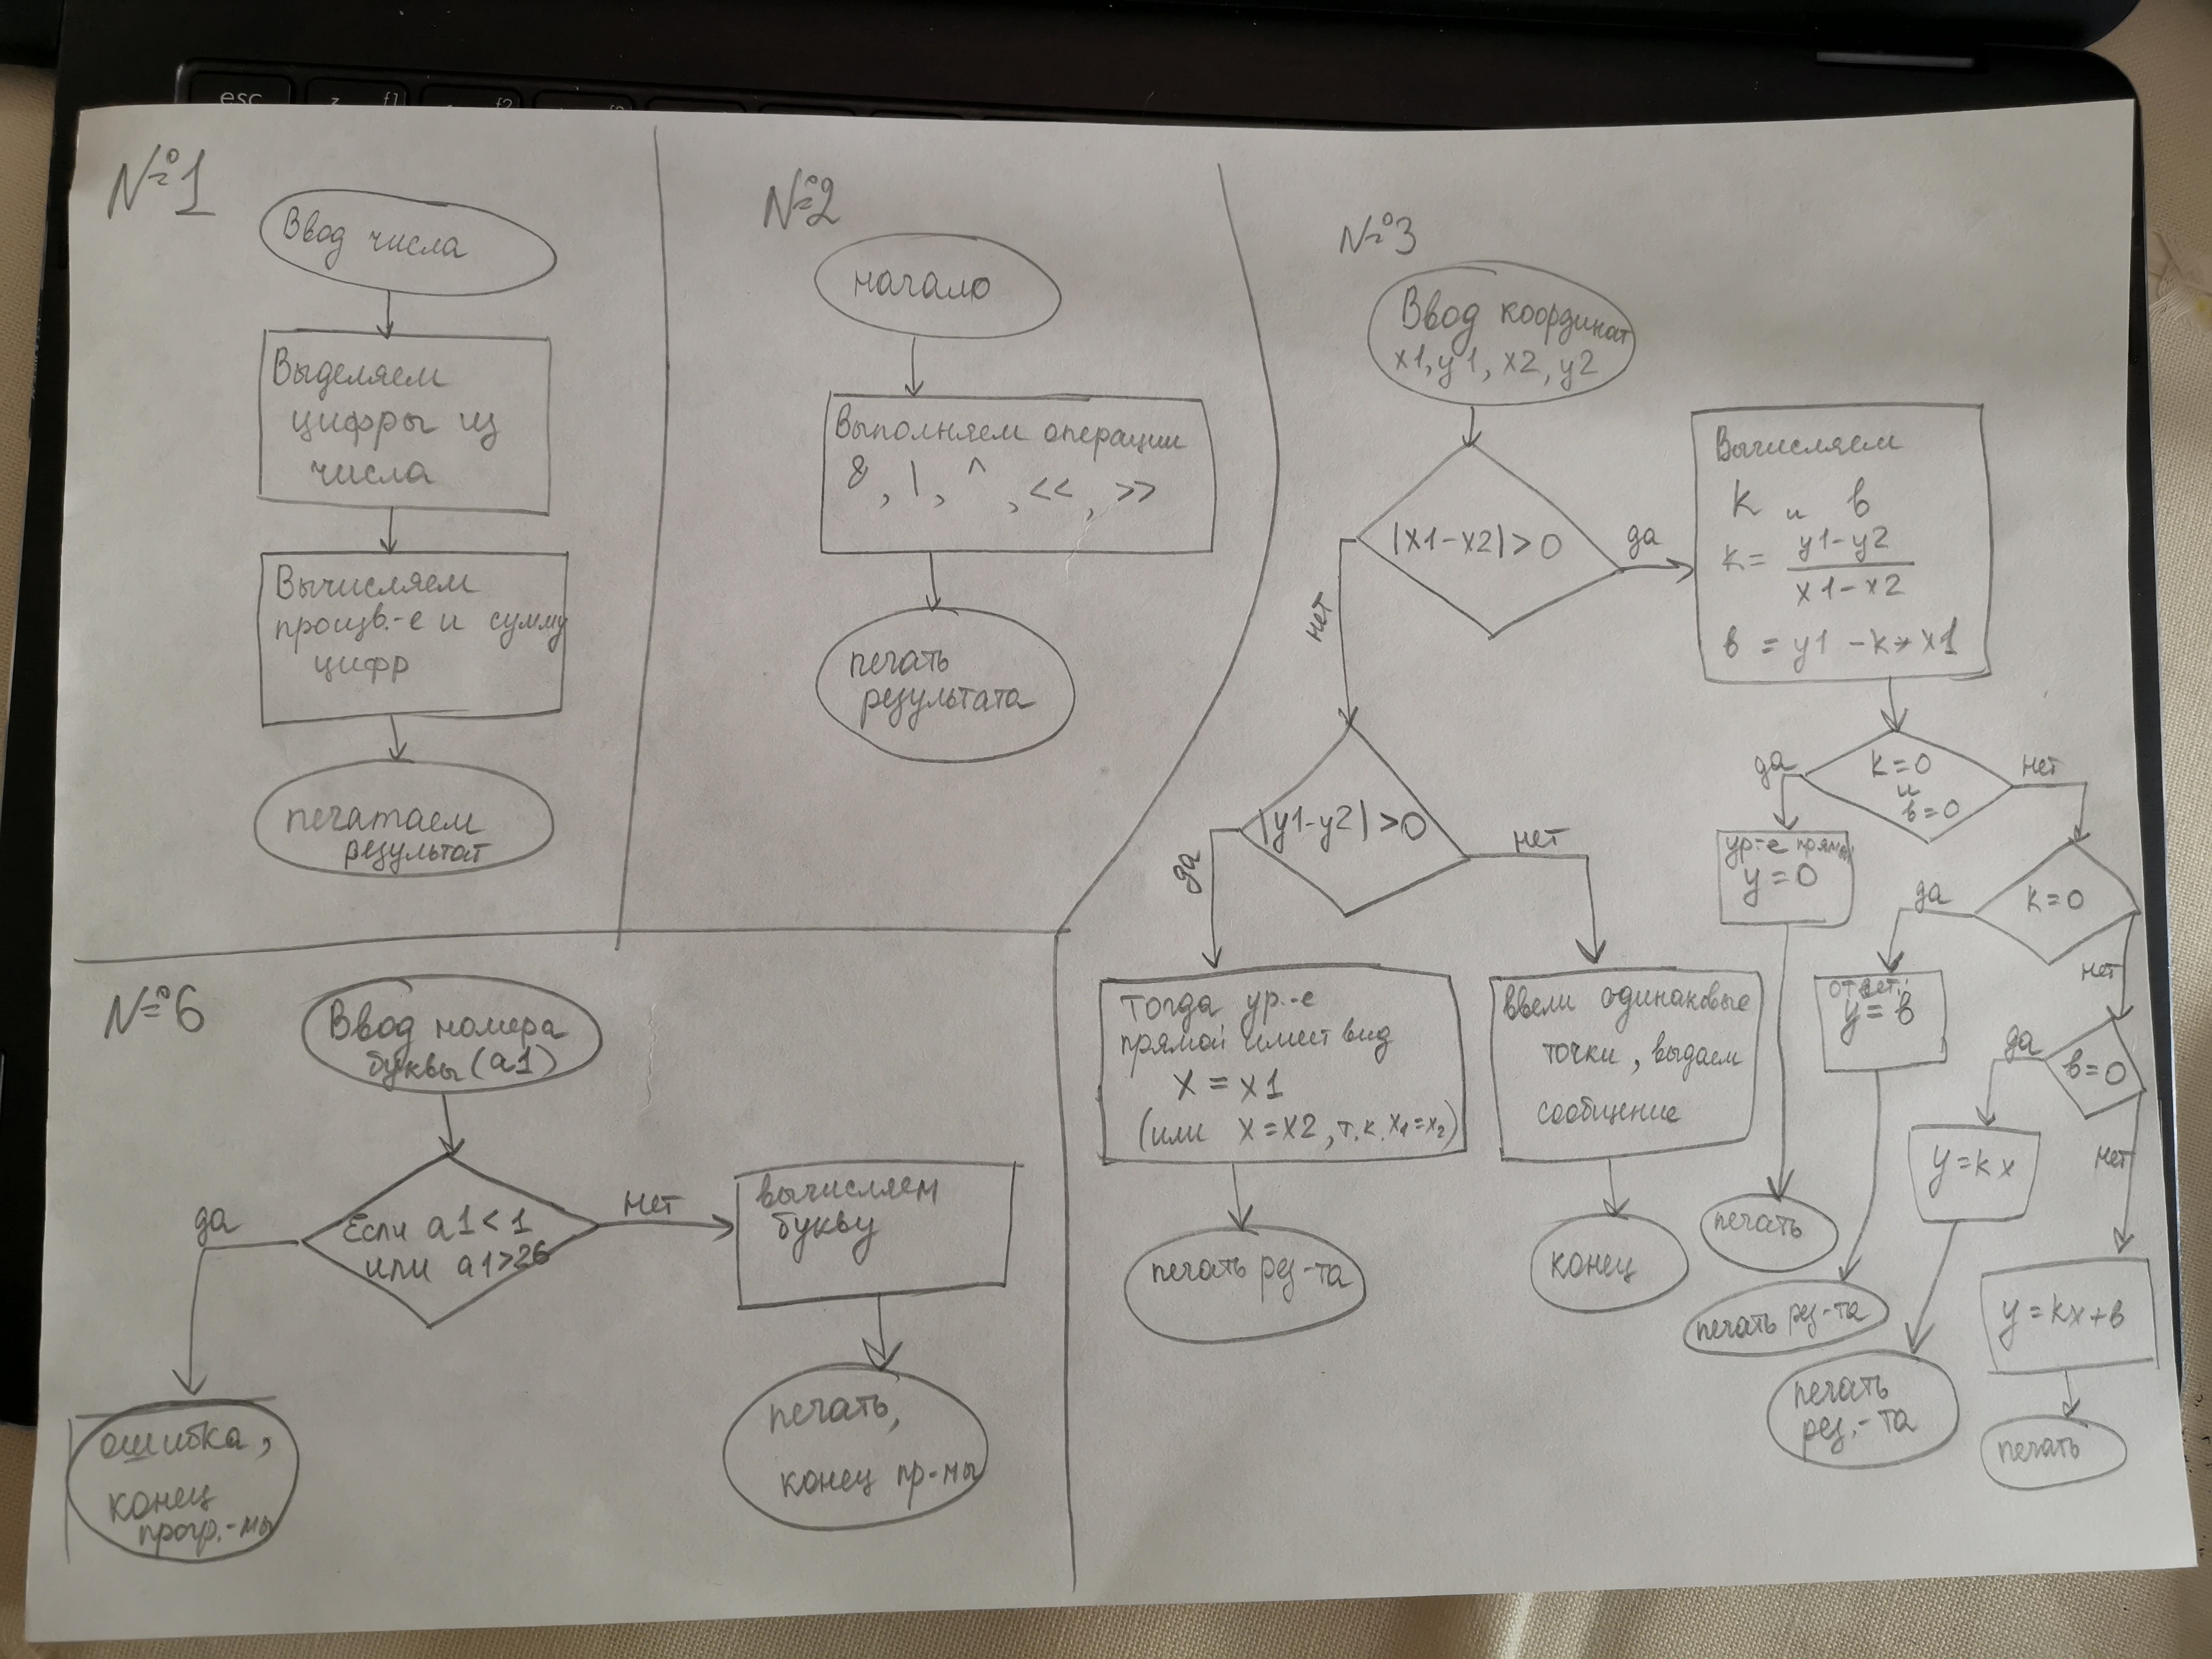 esc
f1
f2
№1
Ввод числа
Выделяем
цифры из
числа
Вычисляем
произв.-е и сумму
цифр
печатаем
результат
№2
начало
Выполняем операции
&, |, ^, <<, >>
печать
результата
№3
Ввод координат
x1, y1, x2, y2
|x1-x2|>0
да
нет
Вычисляем
k и в
k = y1-y2
x1-x2
в = y1 - k * x1
|y1-y2|>0
да
нет
Тогда ур.-е
прямой имеет вид
x = x1
(или x=x2, т.к. x1=x2)
печать рез-та
ввели одинаковые
точки, выдаем
сообщение
конец
k=0
и
в=0
да
нет
ур-е прямой
y=0
печать
k=0
да
нет
ответ:
y=в
печать рез-та
в=0
да
нет
y=kx
печать
рез.-та
y=kx+в
печать
№6
Ввод номера
буквы (a1)
Если a1<1
или a1>26
да
нет
вычисляем
букву
ошибка,
конец
прогр.-мы
печать,
конец пр-мы